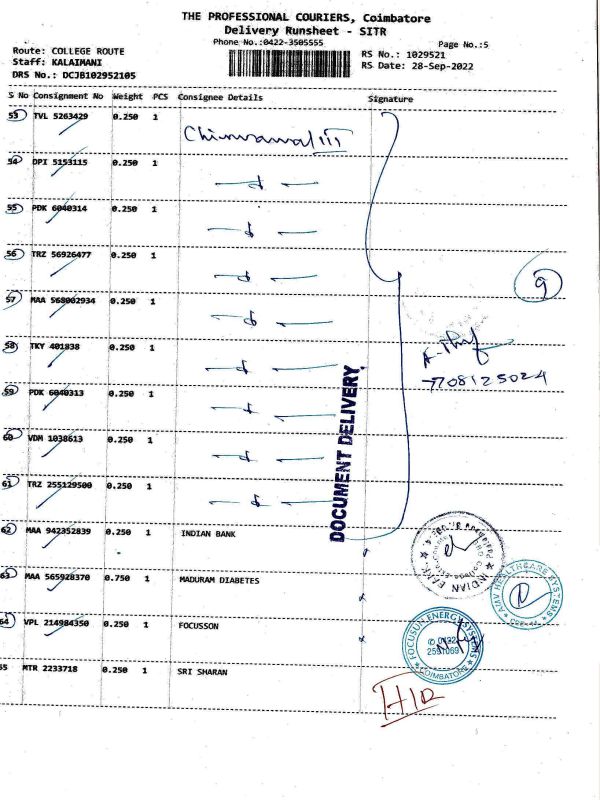 THE PROFESSIONAL COURIERS, Coimbatore
Delivery Runsheet - SITR
Phone No.:0422-3505555
Page No.:5
Route: COLLEGE ROUTE
RS No.: 1029521
Staff: KALAIMANI
RS Date: 28-Sep-2022
DRS No.: DCJB102952105
S No Consignment No Weight PCS Consignee Details Signature
53 TVL 5263429 0.250 1
54 DPI 5153115 0.250 1
55 PDK 6040314 0.250 1
56 TRZ 56926477 0.250 1
9
57 MAA 568002934 0.250 1
58 TKY 401838 0.250 1
7708125024
59 PDK 6040313 0.250 1
60 VDM 1038613 0.250 1
61 TRZ 255129500 0.250 1
DOCUMENT DELIVERY
62 MAA 942352839 0.250 1 INDIAN BANK
INDIAN BANK
63 MAA 565928370 0.750 1 MADURAM DIABETES
HEALTHCARE SYSTEMS
64 VPL 214984350 0.250 1 FOCUSSON
FOCUSUN ENERGY SYSTEMS
0422
2591069
COIMBATORE
55 MTR 2233718 0.250 1 SRI SHARAN